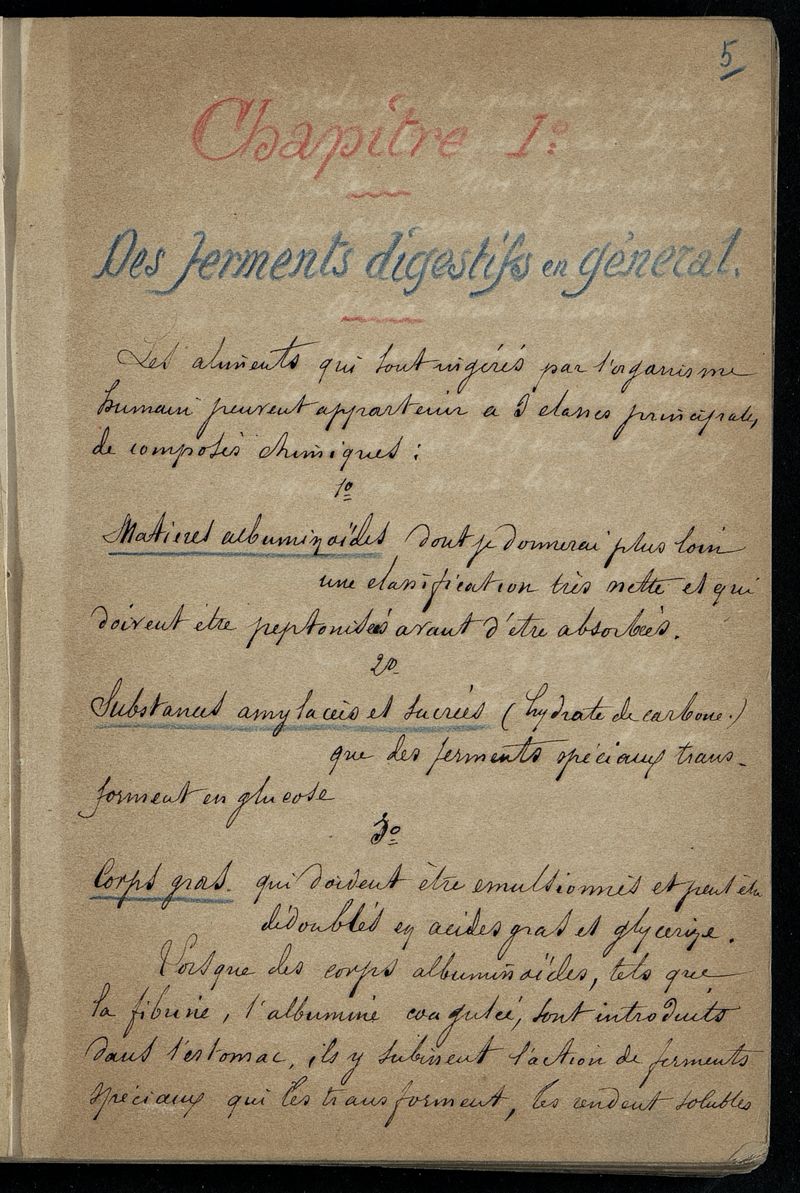 5
Chapitre 1º
Des ferments digestifs en général.
Les aliments qui sont ingérés par l'organisme
humain peuvent appartenir a 3 classes principales
de composés chimiques :
1º
Matieres albuminoïdes dont je donnerai plus loin
une classification très nette et qui
doivent être peptonisés avant d'être absorbées.
2º
Substances amylacées et sucrées (hydrate de carbone.)
que des ferments spéciaux trans-
forment en glucose
3º
Corps gras. qui doivent être emulsionnés et peut être
dédoublés en acides gras et glycerine.
Lorsque des corps albuminoïdes, tels que
la fibrine, l'albumine coagulée, sont introduits
dans l'estomac, ils y subissent l'action de ferments
spéciaux qui les transforment, les rendent solubles